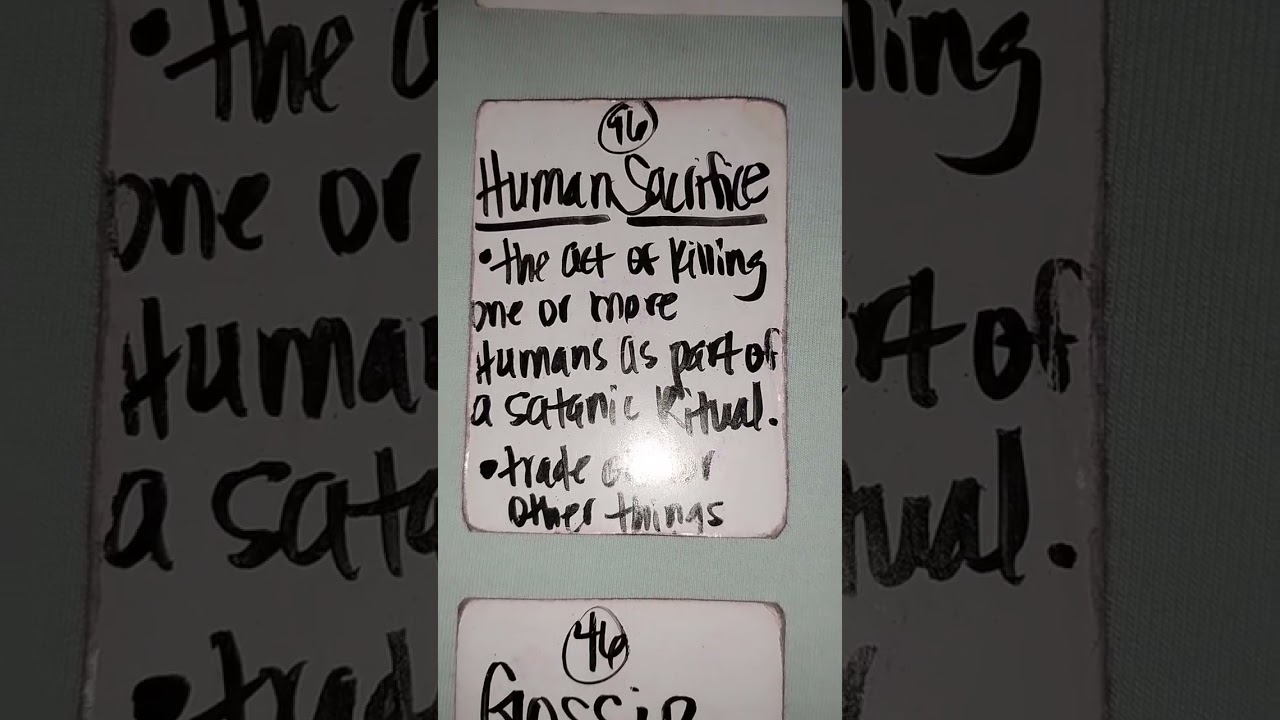 96
Human Sacrifice
•the act of killing
one or more
Humans as part of
a satanic Ritual.
•trade
other things
46
Gossip